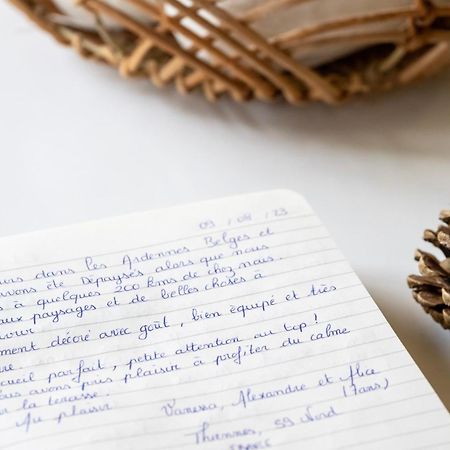 09 / 08 / 23
dans les Ardennes Belges et
avons été Dépaysés alors que nous
à quelques 200 kms de chez nous.
paysages et de belles choses à
décoré avec goût, bien équipé et très
parfait, petite attention au top !
avons pris plaisir à profiter du calme
la terasse.
Au plaisir
Vanessa, Alexandre et Alice
(7ans)
Thiennes, 59 Nord